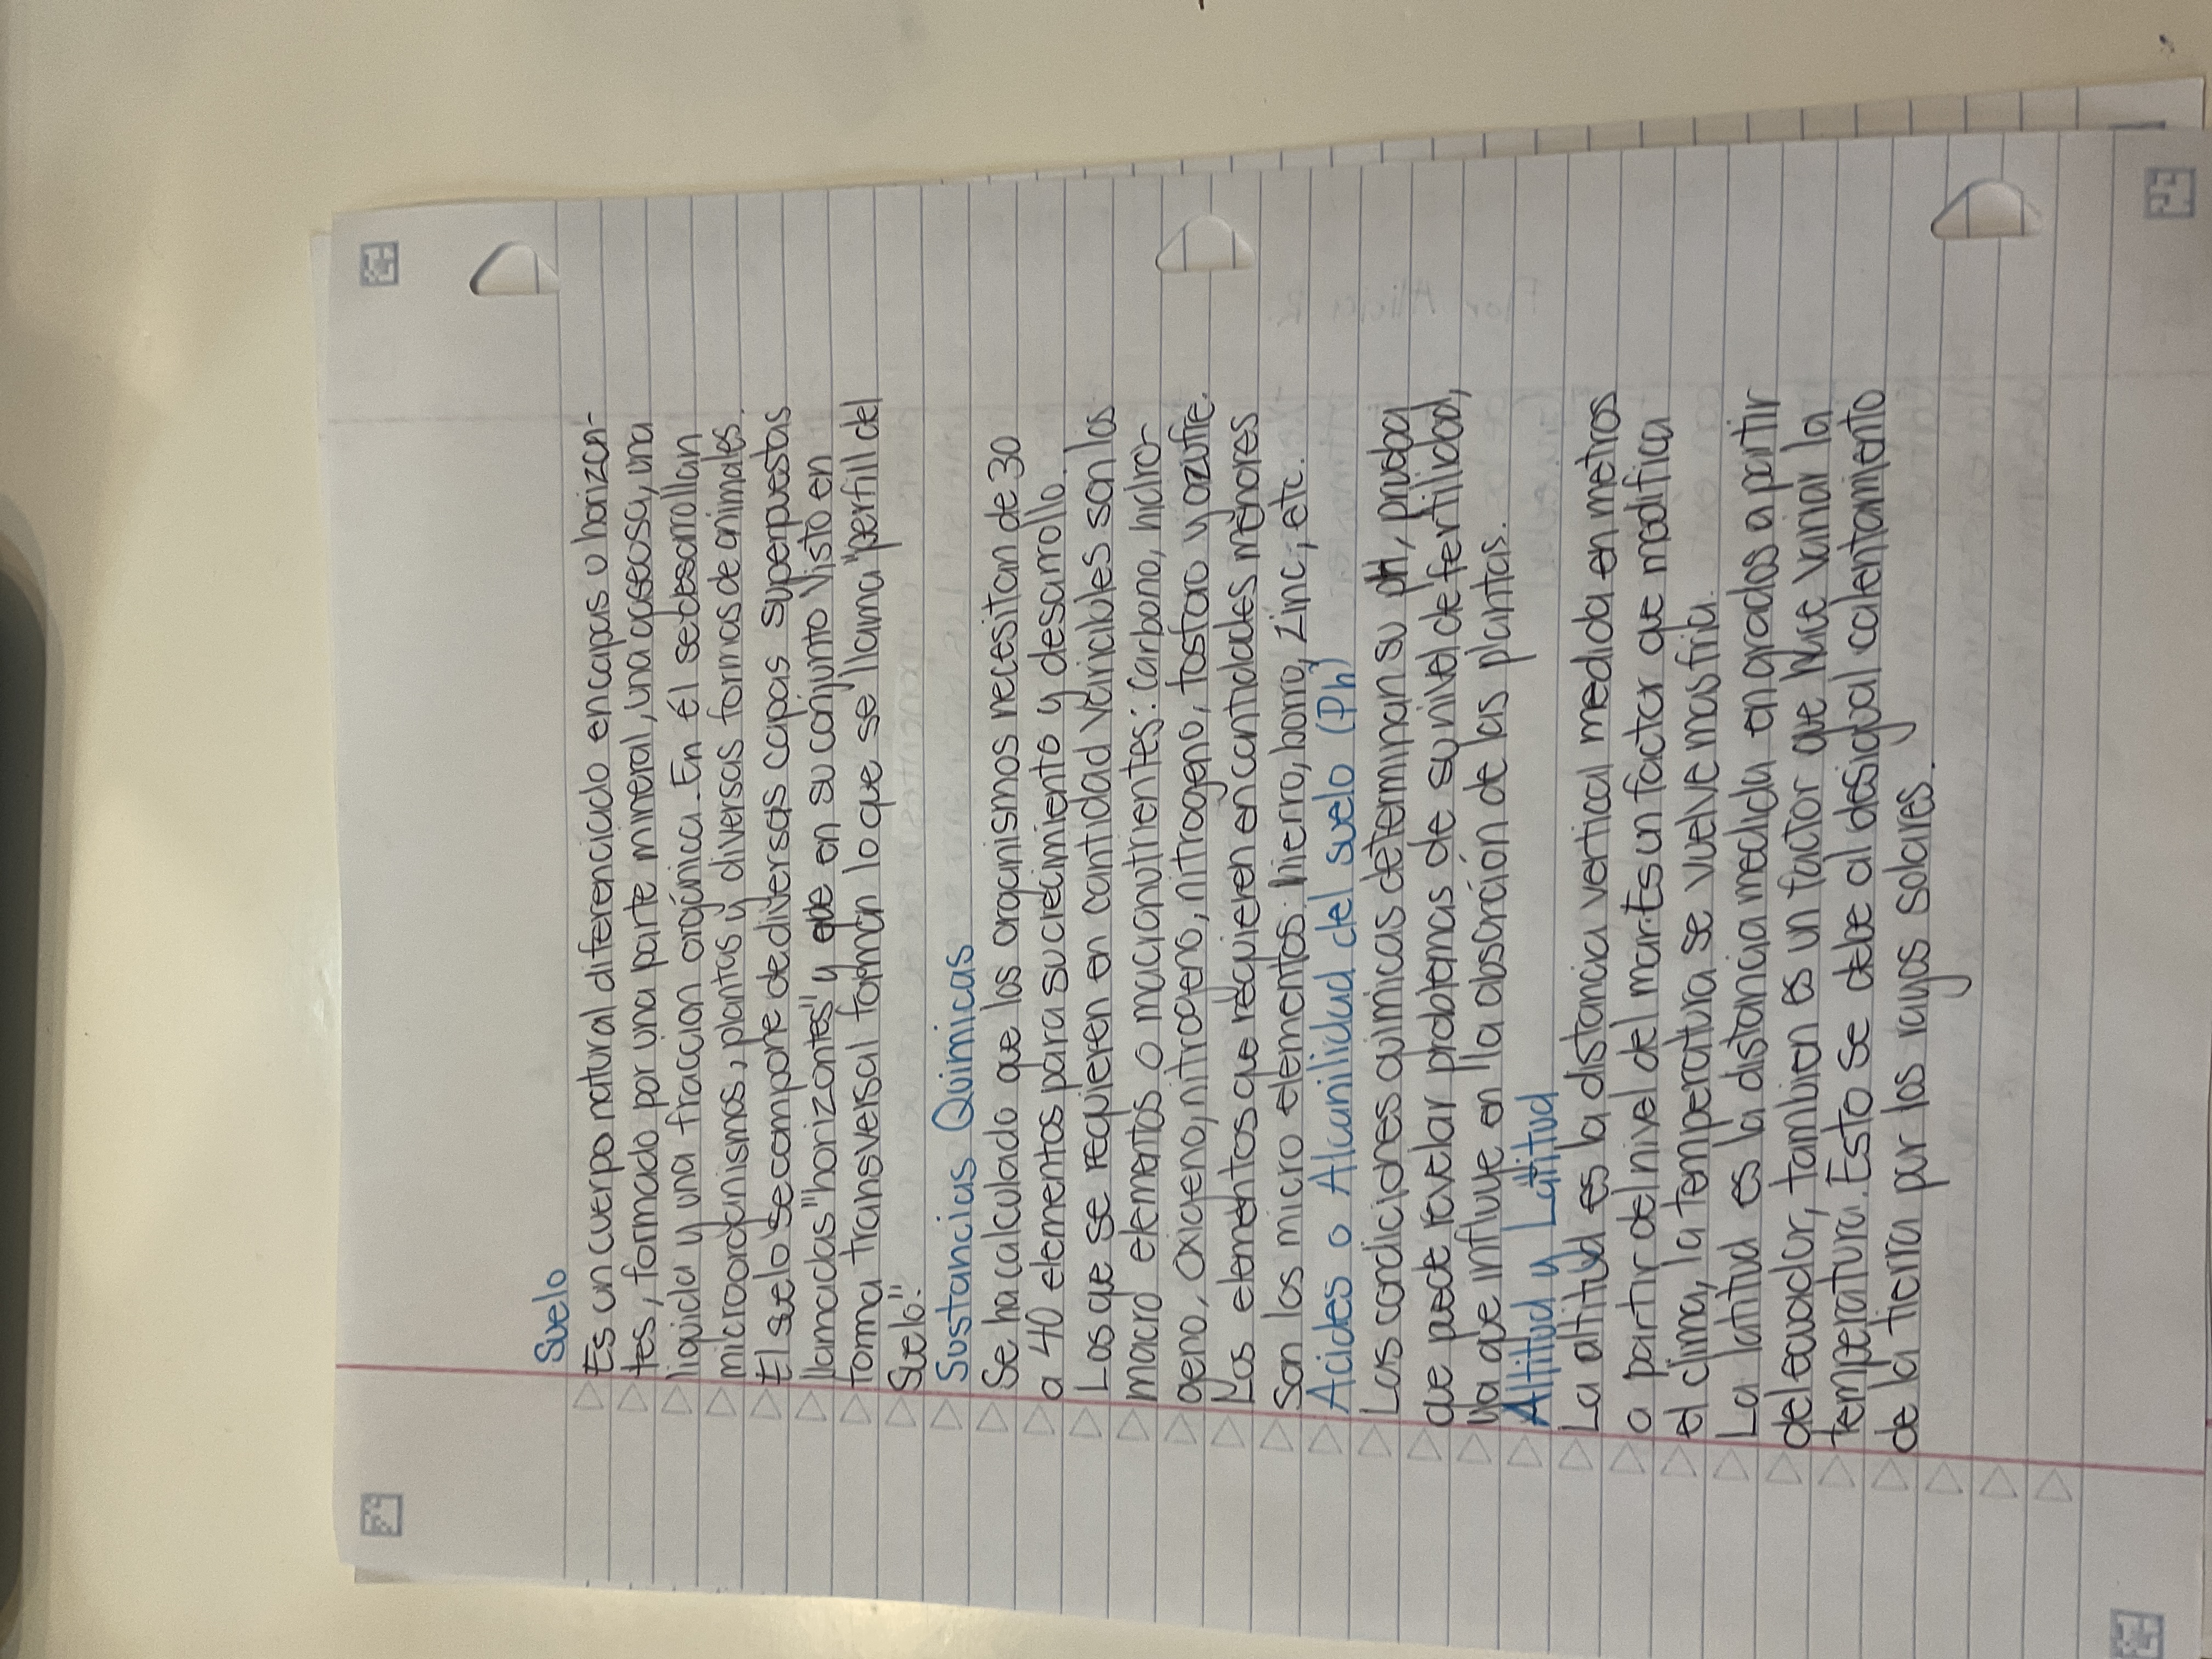 Suelo
Es un cuerpo natural diferenciado en capas u horizon-
tes, formado por una parte mineral, una gaseosa, una
liquida y una fracción orgánica. En él se desarrollan
microorganismos, plantas y diversas formas de animales.
El suelo se compone de diversas capas superpuestas
llamadas "horizontes" y que en su conjunto visto en
forma transversal forman lo que se llama "perfill del
Suelo".
Sustancias Quimicas
Se ha calculado que los organismos necesitan de 30
a 40 elementos para su crecimiento y desarrollo.
Los que se requieren en cantidad variables son los
macro elementos o macronutrientes: Carbono, hidro-
geno, oxigeno, nitrogeno, nitrogeno, fosforo y azufre.
Los elementos que requieren en cantidades menores
son los micro elementos: hierro, borro, zinc, etc.
Acides o Alcanilidad del suelo (Ph)
Las condiciones quimicas determinan su pH, prueba
que puede revelar problemas de su nivel de fertilidad,
ya que influye en lla absorción de las plantas.
Altitud y Latitud
La altitud es la distancia vertical medida en metros
a partir del nivel del mar. Es un factor que modifica
el clima, la temperatura se vuelve mas fria.
La latitud es la distancia medida en grados a partir
del ecuador, tambien es un factor que hace variar la
temperatura. Esto se debe al desigual calentamiento
de la tierra por los rayos solares.